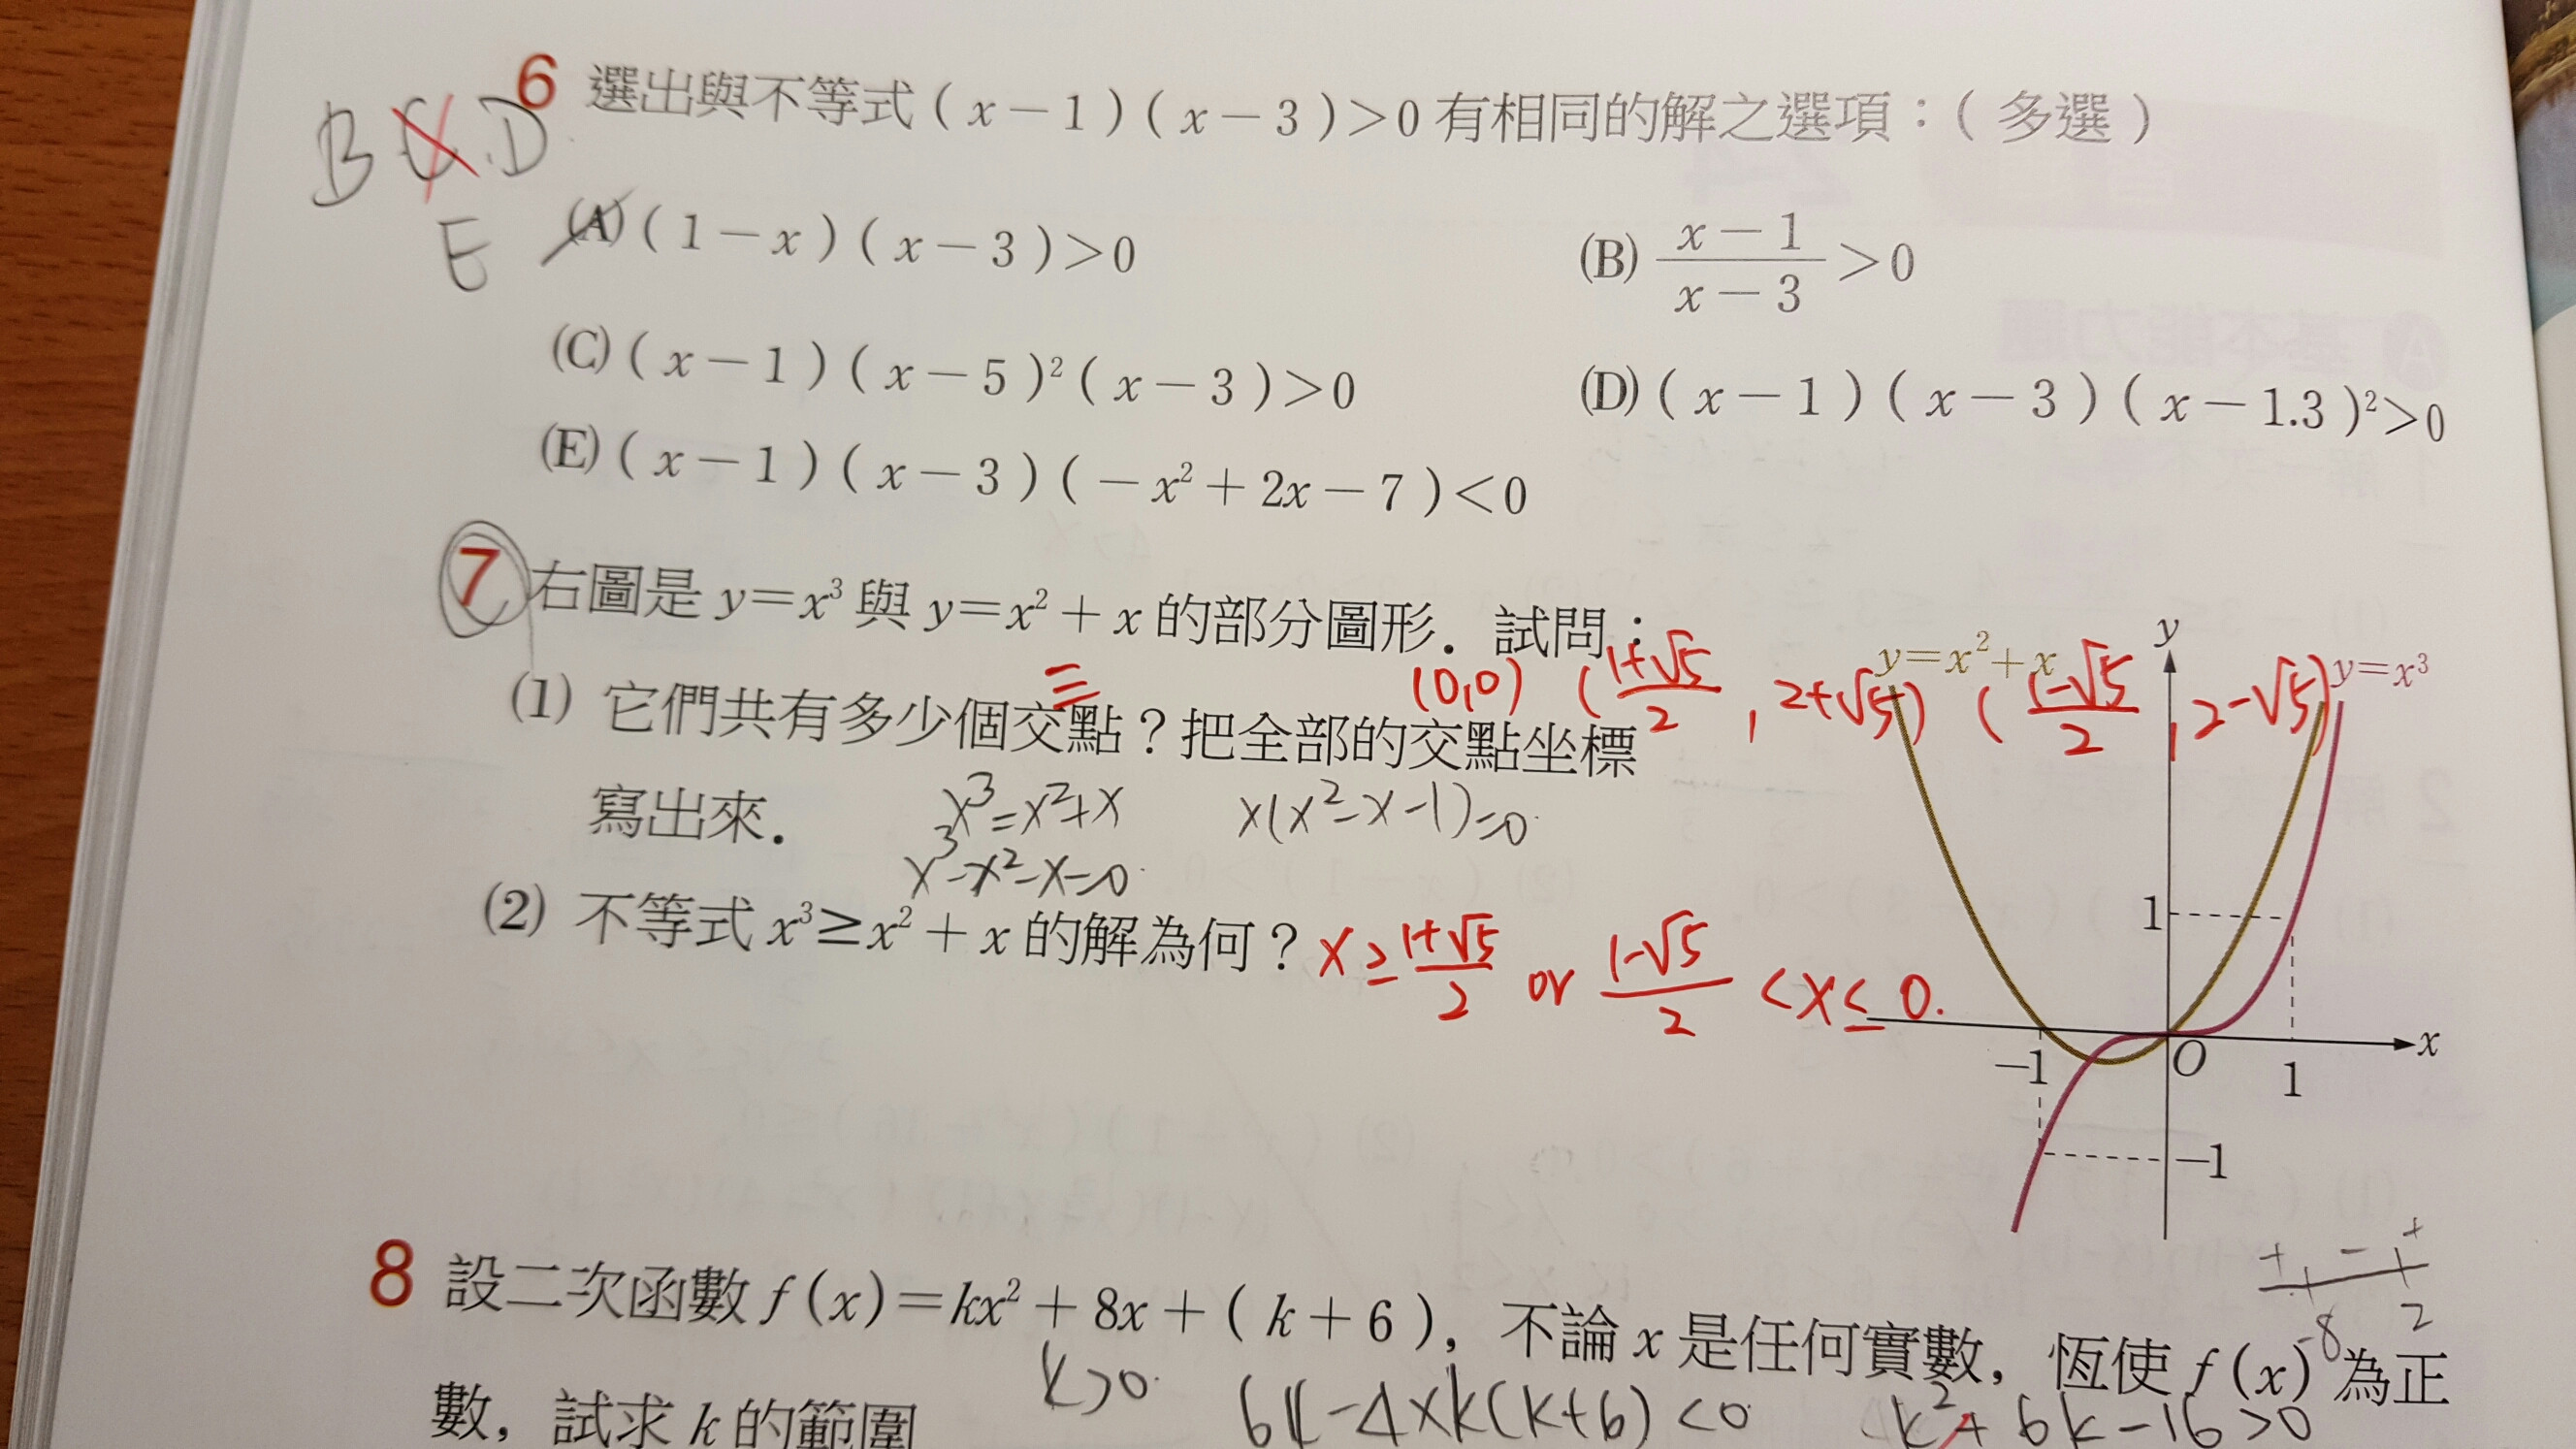 6 選出與不等式(x－1)(x－3)>0 有相同的解之選項：(多選)
B C D
E
(A)(1－x)(x－3)>0
(B) (x－1)/(x－3) >0
(C)(x－1)(x－5)²(x－3)>0
(D)(x－1)(x－3)(x－1.3)²>0
(E)(x－1)(x－3)(－x²＋2x－7)<0
7 右圖是 y=x³ 與 y=x²＋x 的部分圖形．試問：
三
(0,0) ((1+√5)/2 , 2+√5) ((1-√5)/2 , 2-√5)
(1) 它們共有多少個交點？把全部的交點坐標
寫出來．
x³=x²+x x(x²-x-1)=0
x³-x²-x=0
(2) 不等式 x³≥x²＋x 的解為何？ x≥(1+√5)/2 or (1-√5)/2 <x≤0.
y=x²+x
y
y=x³
1
−1
O
1
x
−1
8 設二次函數 f(x)=kx²＋8x＋(k＋6)，不論 x 是任何實數，恆使 f(x) 為正
數，試求 k 的範圍
+ - +
-8 2
k>0
64-4×k(k+6)<0
k²+6k-16>0